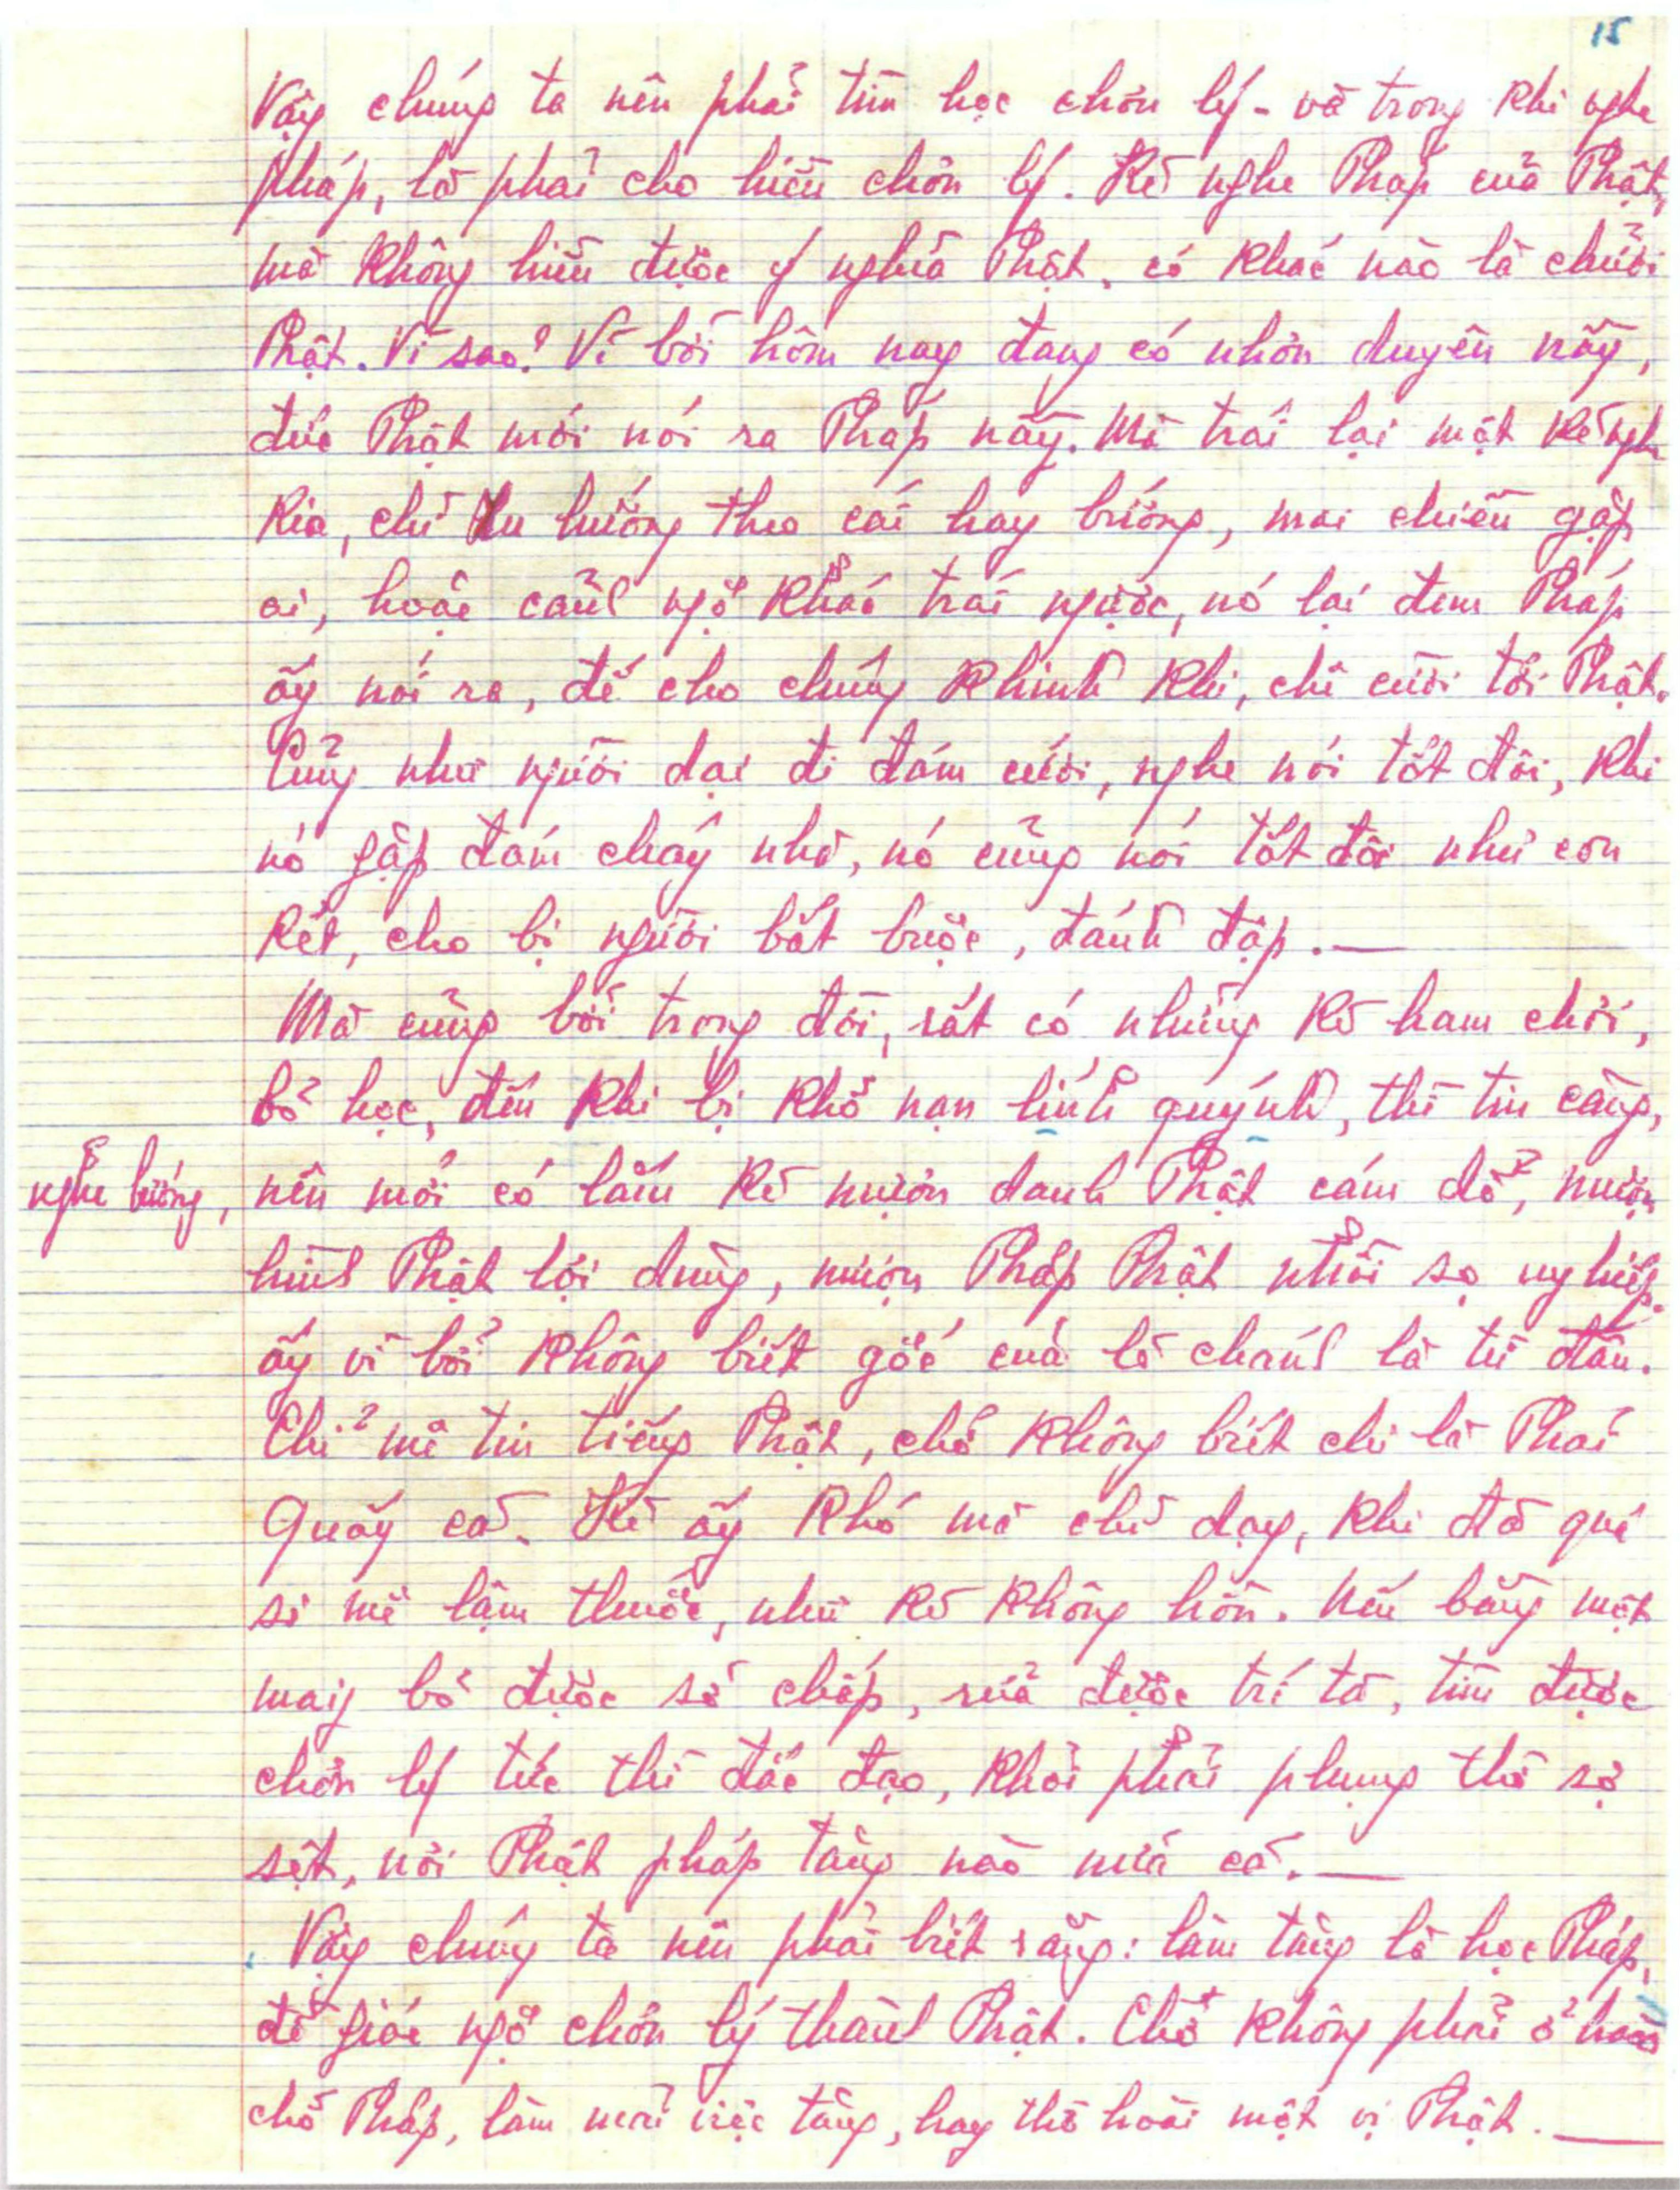 15
Vậy chúng ta nên phải tìm học chơn lý - và trong khi nghe
pháp, là phải cho hiểu chơn lý. Kẻ nghe Pháp của Phật,
mà không hiểu được ý nghĩa Phật, có khác nào là chưởi
Phật. Vì sao? Vì bởi hôm nay đang có nhơn duyên nầy,
đức Phật mới nói ra Pháp nầy. Mà trái lại một kẻ nghe
kia, chỉ xu hướng theo cái hay bướng, mai chiều gặp
ai, hoặc cảnh ngộ khác trái ngược, nó lại đem Pháp
ấy nói ra, để cho chúng khinh khi, chê cười tới Phật.
Cũng như người dại đi đám cưới, nghe nói tốt đôi, khi
nó gặp đám cháy nhà, nó cũng nói tốt đôi như con
két, cho bị người bắt buộc, đánh đập.—
Mà cũng bởi trong đời, rất có những kẻ ham chơi,
bỏ học, đến khi bị khổ nạn lính quýnh, thì tin càng,
nghe bướng, nên mới có lắm kẻ mượn danh Phật cám dỗ, mượn
hình Phật lợi dụng, mượn Pháp Phật nhồi sọ nghiệp.
ấy vì bởi không biết gốc của lẽ chánh là từ đâu.
Chỉ mê tin tiếng Phật, chớ không biết chi là Phải
Quấy cả. Kẻ ấy khó mà chỉ dạy, khi đã quá
si mê lậm thuốc, như kẻ không hồn. Nếu bằng một
mai bỏ được sở chấp, rửa được trí tà, tìm được
chơn lý tức thì đắc đạo, khỏi phải phụng thờ sợ
sệt, nơi Phật pháp tăng nào nữa cả.—
Vậy chúng ta nên phải biết rằng: làm tăng là học Pháp,
để giác ngộ chơn lý thành Phật. Chớ không phải ở hoài
chỗ Pháp, làm mãi việc tăng, hay thờ hoài một vị Phật.—